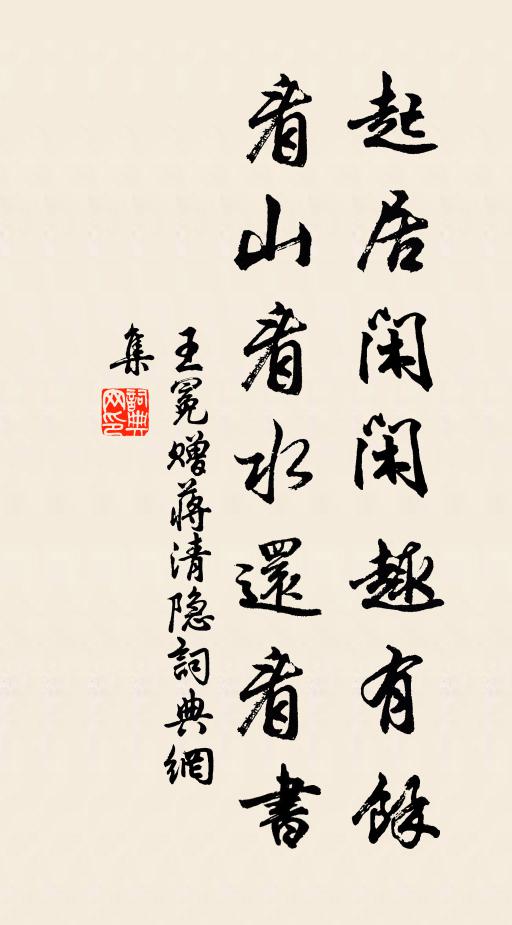 起居閑閑趣有餘
看山看水還看書
王冕赠蒋清隐詞典網
集
詞典
网印